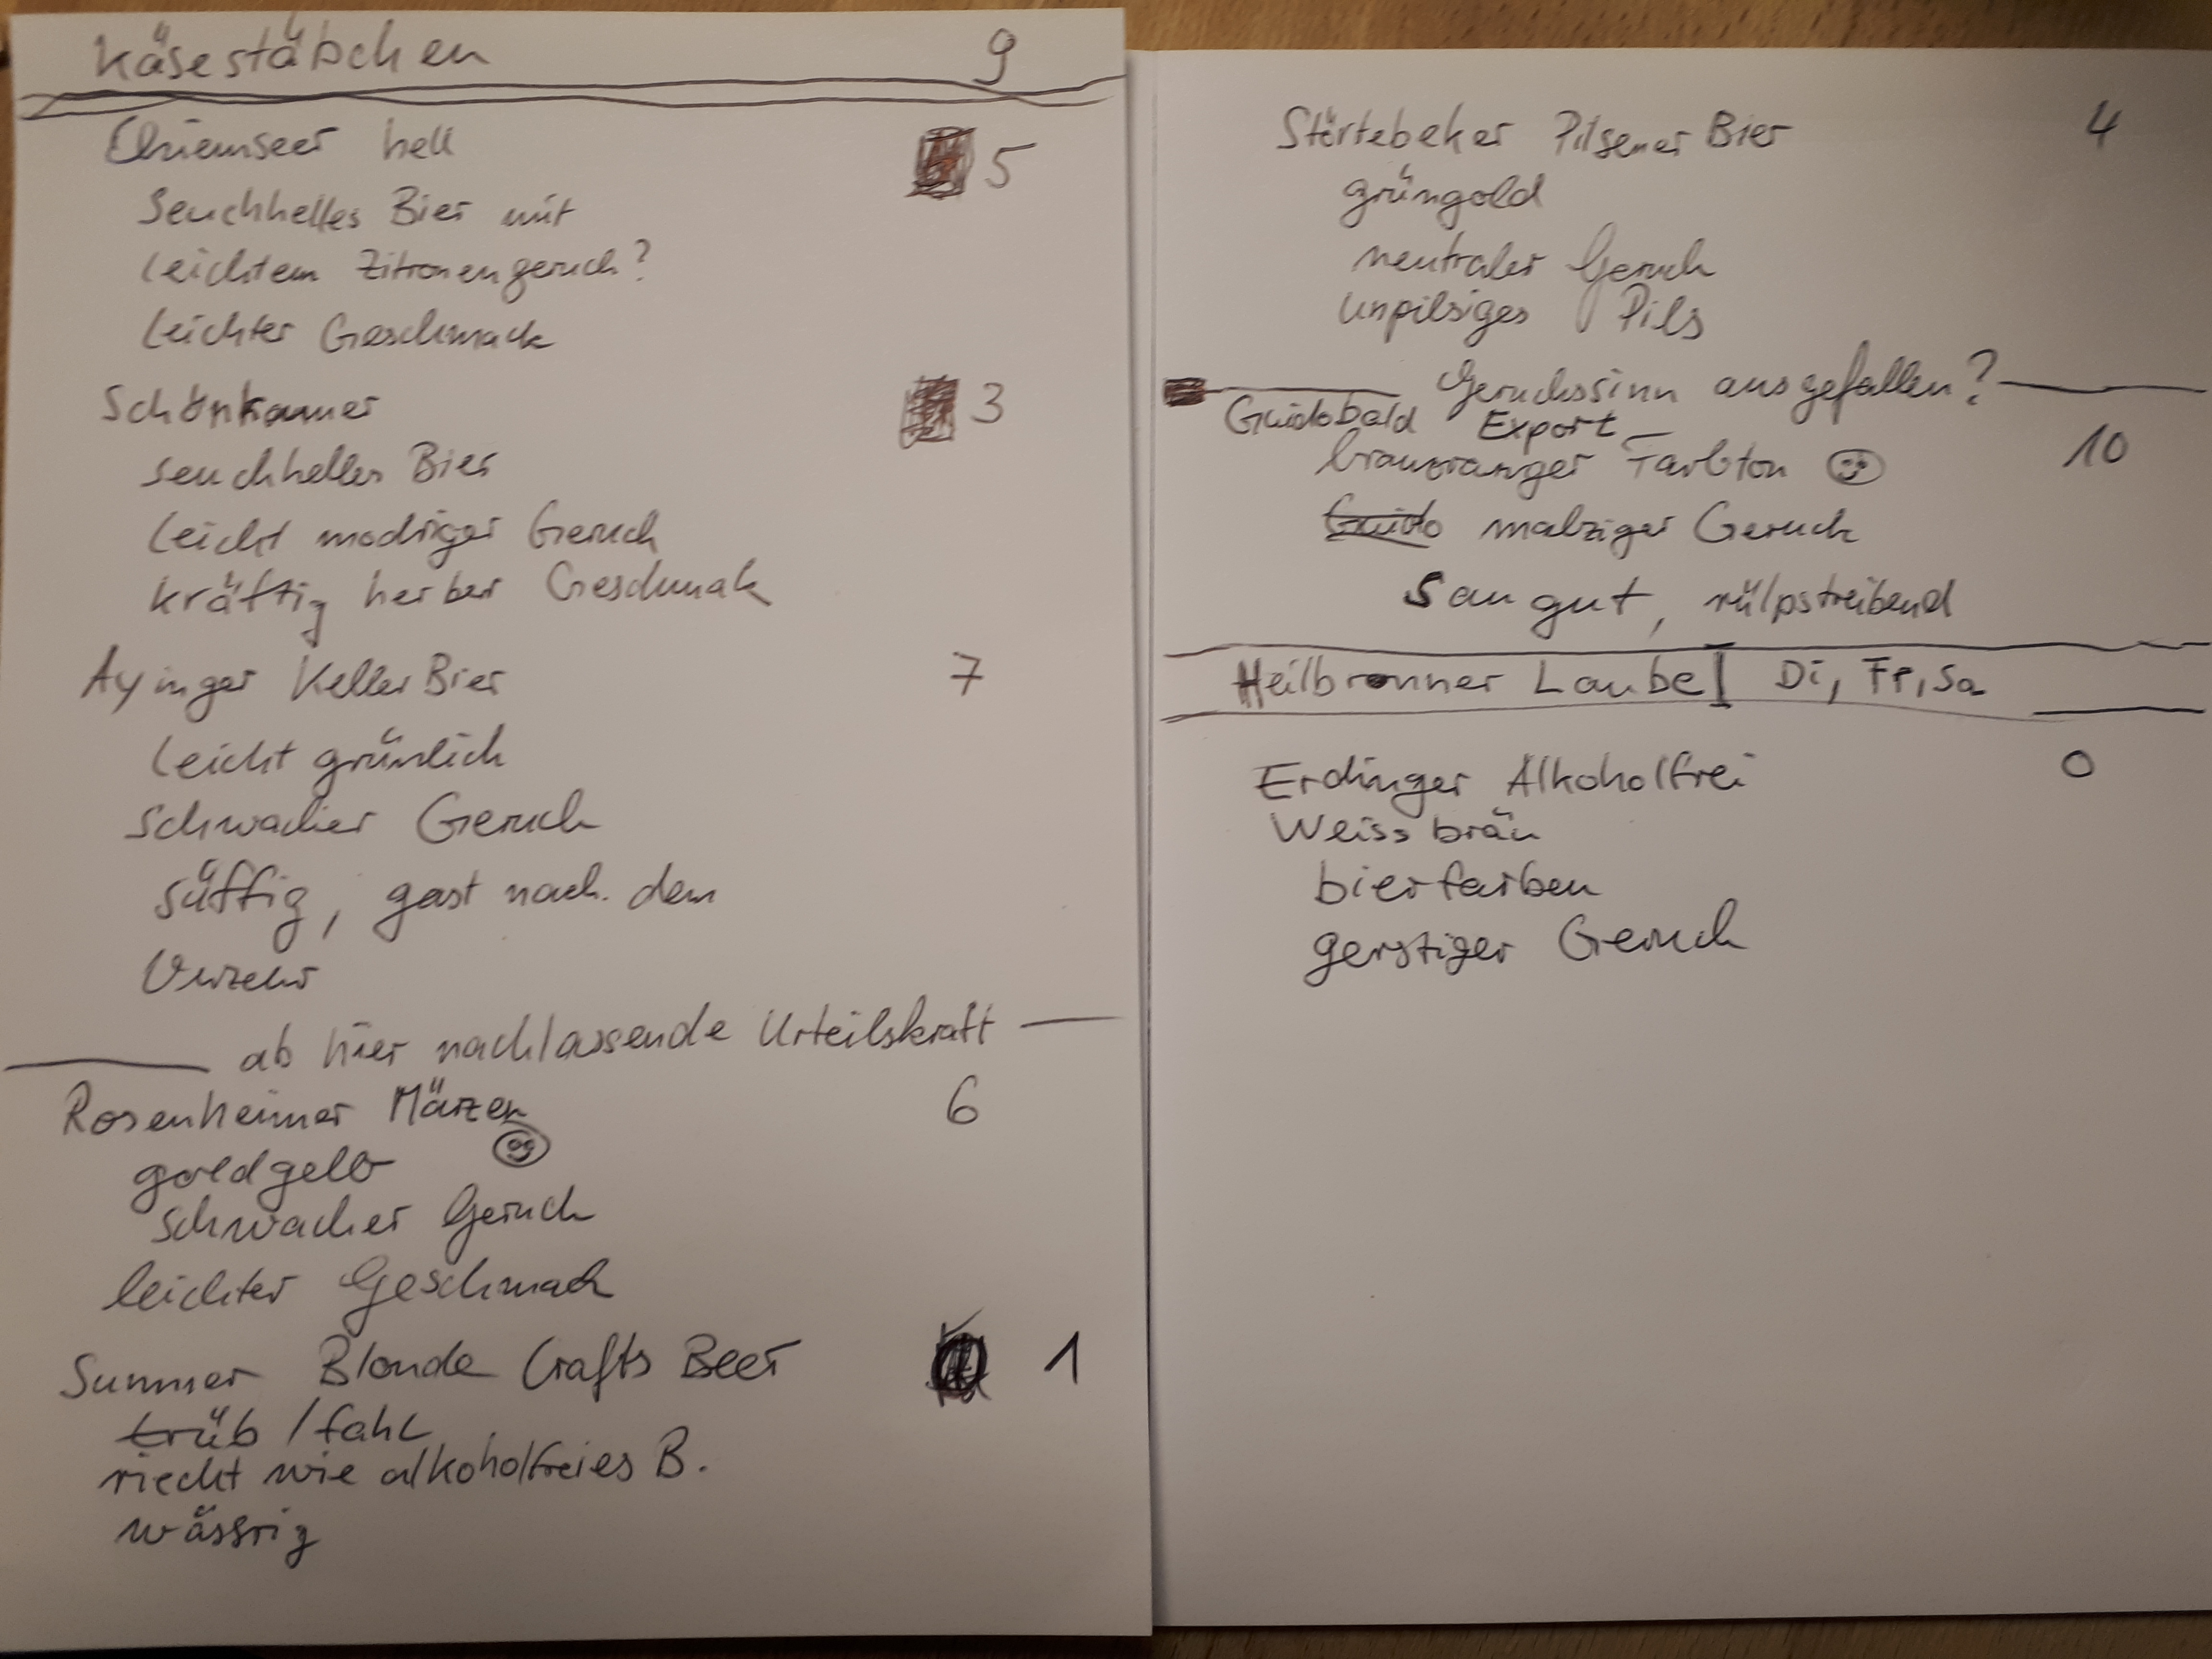 Käsestäbchen 9
Chiemseer hell 5
Seuchhelles Bier mit
leichtem Zitronengeruch?
leichter Geschmack
Schönramer 3
seuchhelles Bier
leicht modriger Geruch
kräftig herber Geschmak
Ayinger KellerBier 7
leicht grünlich
schwacher Geruch
süffig, gast nach dem
Verzehr
ab hier nachlassende Urteilskraft
Rosenheimer Märzen 6
goldgelb
schwacher Geruch
leichter Geschmack
Summer Blonde Crafts Beer 1
trüb / fahl
riecht wie alkoholfreies B.
wässrig
Störtebeker Pilsener Bier 4
grüngold
neutraler Geruch
unpilsiges Pils
Geruchssinn ausgefallen?
Guidobald Export
braunoranger Farbton 10
Guido malziger Geruch
Saugut, rülpstreibend
Heilbronner Laube | Di, Fr, Sa
Erdinger Alkoholfrei 0
Weissbräu
bierfarben
gerstiger Geruch